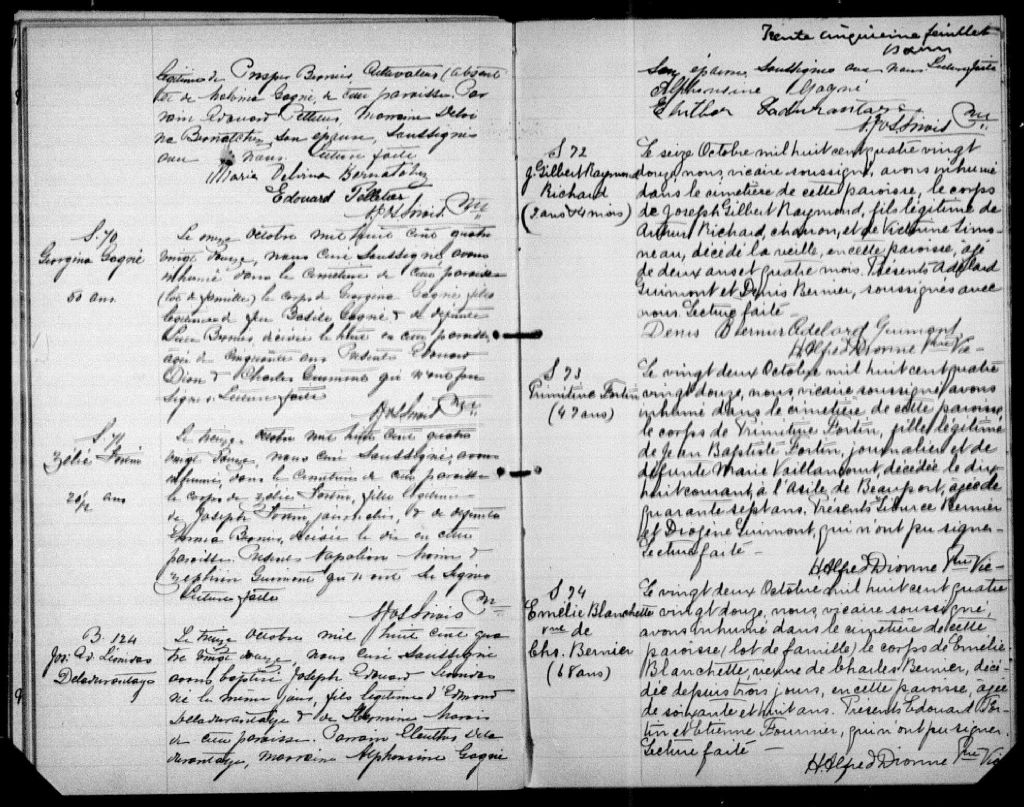 légitime de Prosper Bernier, cultivateur (absent
et de Malvina Gagné, de cette paroisse. Par
rain Edouard Pelletier, Marraine Delvi
na Bernatchez son épouse, Soussignés
avec nous Lecture faite
Maria Delvina Bernatchez
Edouard Pelletier
S. 70
Georgina Gagné
50 ans
Le onze Octobre mil huit cent quatre
vingt douze, nous Curé Soussigné, avons
inhumé dans le Cimetière de cette paroisse
(lot de famille) le corps de Georgina Gagné, fille
légitime de feu Basile Gagné & de défunte
Bernier, décédée le huit en cette paroisse,
agée de cinquante ans Présents Edouard
Dion & Charles Guimont qui n'ont pu
Signer. Lecture faite
S. 71
Zélie Morin
20½ ans
Le treize Octobre mil huit cent quatre
vingt douze, nous Curé Soussigné, avons
inhumé, dans le Cimetière de cette paroisse
le corps de Zélie Morin, fille légitime
de Joseph Morin, journalier, & de défunte
Bernier, décédée le dix en cette
paroisse. Présents Napoléon Morin &
Zéphirin Guimont qui n'ont su Signer
Lecture faite
B. 124
Jos. Ed. Léonidas
Deladurantaye
Le treize Octobre mil huit cent qua
tre vingt douze, nous Curé Soussigné
avons baptisé Joseph Edouard Léonidas
né le même jour, fils légitime d'Edmond
Deladurantaye & de Hermine Marois
de cette paroisse. Parrain Eleuthère Dela
durantaye, marraine Alphonsine Gagné
Trente cinquième feuillet
Son épouse, Soussignés avec nous Lecture faite
Alphonsine Gagné
S 72
J. Gilbert Raymond
Richard
(2 ans & 4 mois)
Le seize Octobre mil huit cent quatre vingt
douze, nous, vicaire soussigné, avons inhumé
dans le cimetière de cette paroisse, le corps
de Joseph Gilbert Raymond, fils légitime de
Arthur Richard, charron, et de Victorine Simo
neau, décédé la veille, en cette paroisse, agé
de deux ans et quatre mois. Présents Adélard
Guimont et Denis Bernier, soussignés avec
nous. Lecture faite —
Denis Bernier Adelard Guimont
H. Alfred Dionne Ptre Vic—
S 73
Primitive Fortin
(47 ans)
Le vingt deux Octobre mil huit cent quatre
vingt douze, nous, vicaire soussigné, avons
inhumé dans le cimetière de cette paroisse
le corps de Primitive Fortin, fille légitime
de Jean Baptiste Fortin, journalier et de
défunte Marie Vaillancourt décédée le dix
huit courant, à l'asile de Beauport, agée de
quarante sept ans. Présents Bernier
et Drogène Guimont, qui n'ont pu signer—
Lecture faite —
H. Alfred Dionne Ptre Vic—
S 74
Emélie Blanchette
vve de
Chs. Bernier
(68 ans)
Le vingt deux Octobre mil huit cent quatre
vingt douze, nous, vicaire soussigné,
avons inhumé dans le cimetière de cette
paroisse, (lot de famille) le corps de Emélie
Blanchette, veuve de Charles Bernier, décé
dée depuis trois jours, en cette paroisse, agée
de soixante et huit ans. Présents Edouard For
tin et Etienne Fournier, qui n'ont pu signer.
Lecture faite —
H. Alfred Dionne Ptre Vic